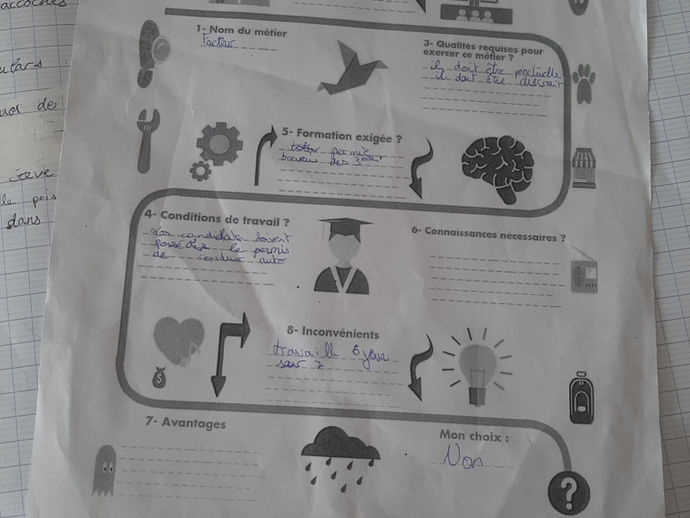 accoches
ulars
de
teve
le pois
dans
1- Nom du métier
Facteur
3- Qualités requises pour
exercer ce métier ?
il doit être ponctuelle
il doit être discrair
5- Formation exigée ?
permie
brevew des 3eme
4- Conditions de travail ?
Les candidats doivent
posséder le permis
de conduir auto
6- Connaissances nécessaires ?
8- Inconvénients
travaille 6 jour
sur 7
7- Avantages
Mon choix :
Non
?